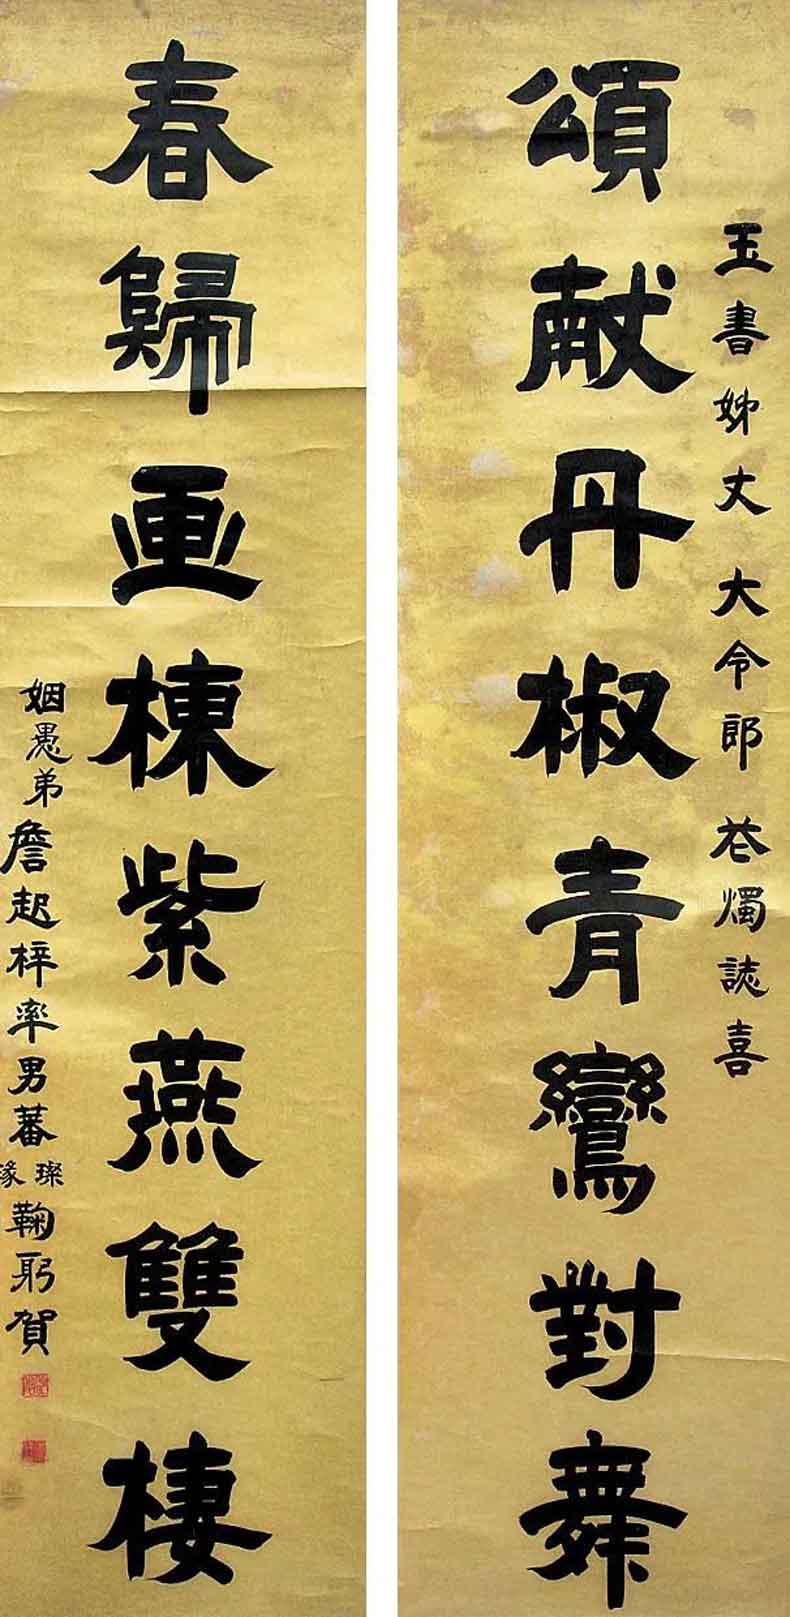 玉書姊丈大令郎花燭誌喜
頌献丹椒青鸞對舞
春歸画棟紫燕雙棲
姻愚弟詹起梓率男蕃璨鞠躬賀